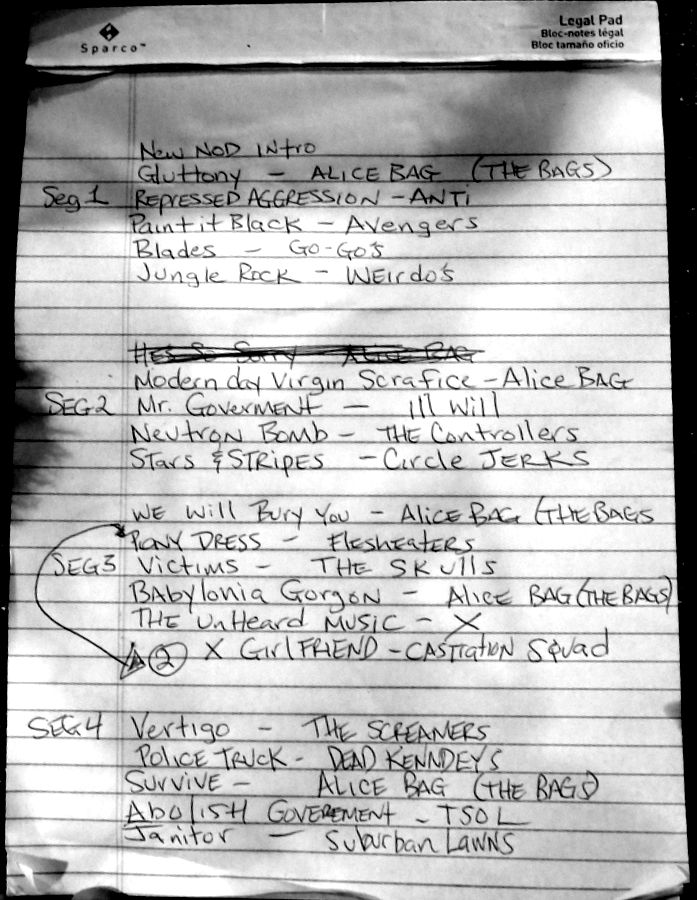 Sparco™
Legal Pad
Bloc-notes légal
Bloc tamaño oficio
New NOD Intro
Gluttony - ALICE BAG (THE BAGS)
Seg 1 REPRESSED AGGRESSION - ANTi
Paint it Black - Avengers
Blades - GO-GO's
Jungle Rock - WEirdo's
HE's So Sorry ALICE BAG
Modern day Virgin Scrafice - Alice BAG
SEG2 Mr. GoverMENT - Ill Will
Neutron Bomb - THE Controllers
Stars & STRIPES - Circle JERKS
WE Will Bury You - Alice BAG (THE BAGS
PONY DRESS - FlesheaTERS
SEG3 Victims - THE SKUlls
BAbylonia Gorgon - Alice BAG (THE BAGS)
THE UnHeard MUSIC - X
② X GirlFRIEND - CASTration Squad
SEG4 Vertigo - THE SCREAMERS
POLICE TRUCK - DEAD KENNDEYS
SURVIVE - ALICE BAG (THE BAGS)
AbolISH GOVEREMENT - TSOL
Janitor - Suburban LAWNS